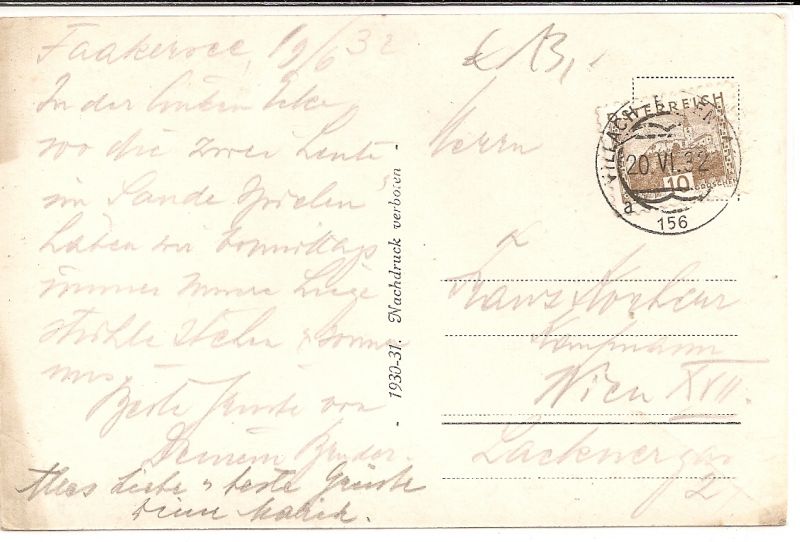 Faakersee, 19/6 32
In der linken Ecke
wo die zwei Leute
im Sande spielen
haben wir Vormittags
immer unsere Liege
stühle stehen & sonnen
uns.
Beste Grüsse von
Deinem Bruder.
Alles Liebe u beste Grüsse
Deine
- 1930-31. Nachdruck verboten -
ÖSTERREICH
10
GROSCHEN
VILLACH
20.VI.32
a
156
Herrn
Franz
Kaufmann
Wien XVII.
Lacknergasse